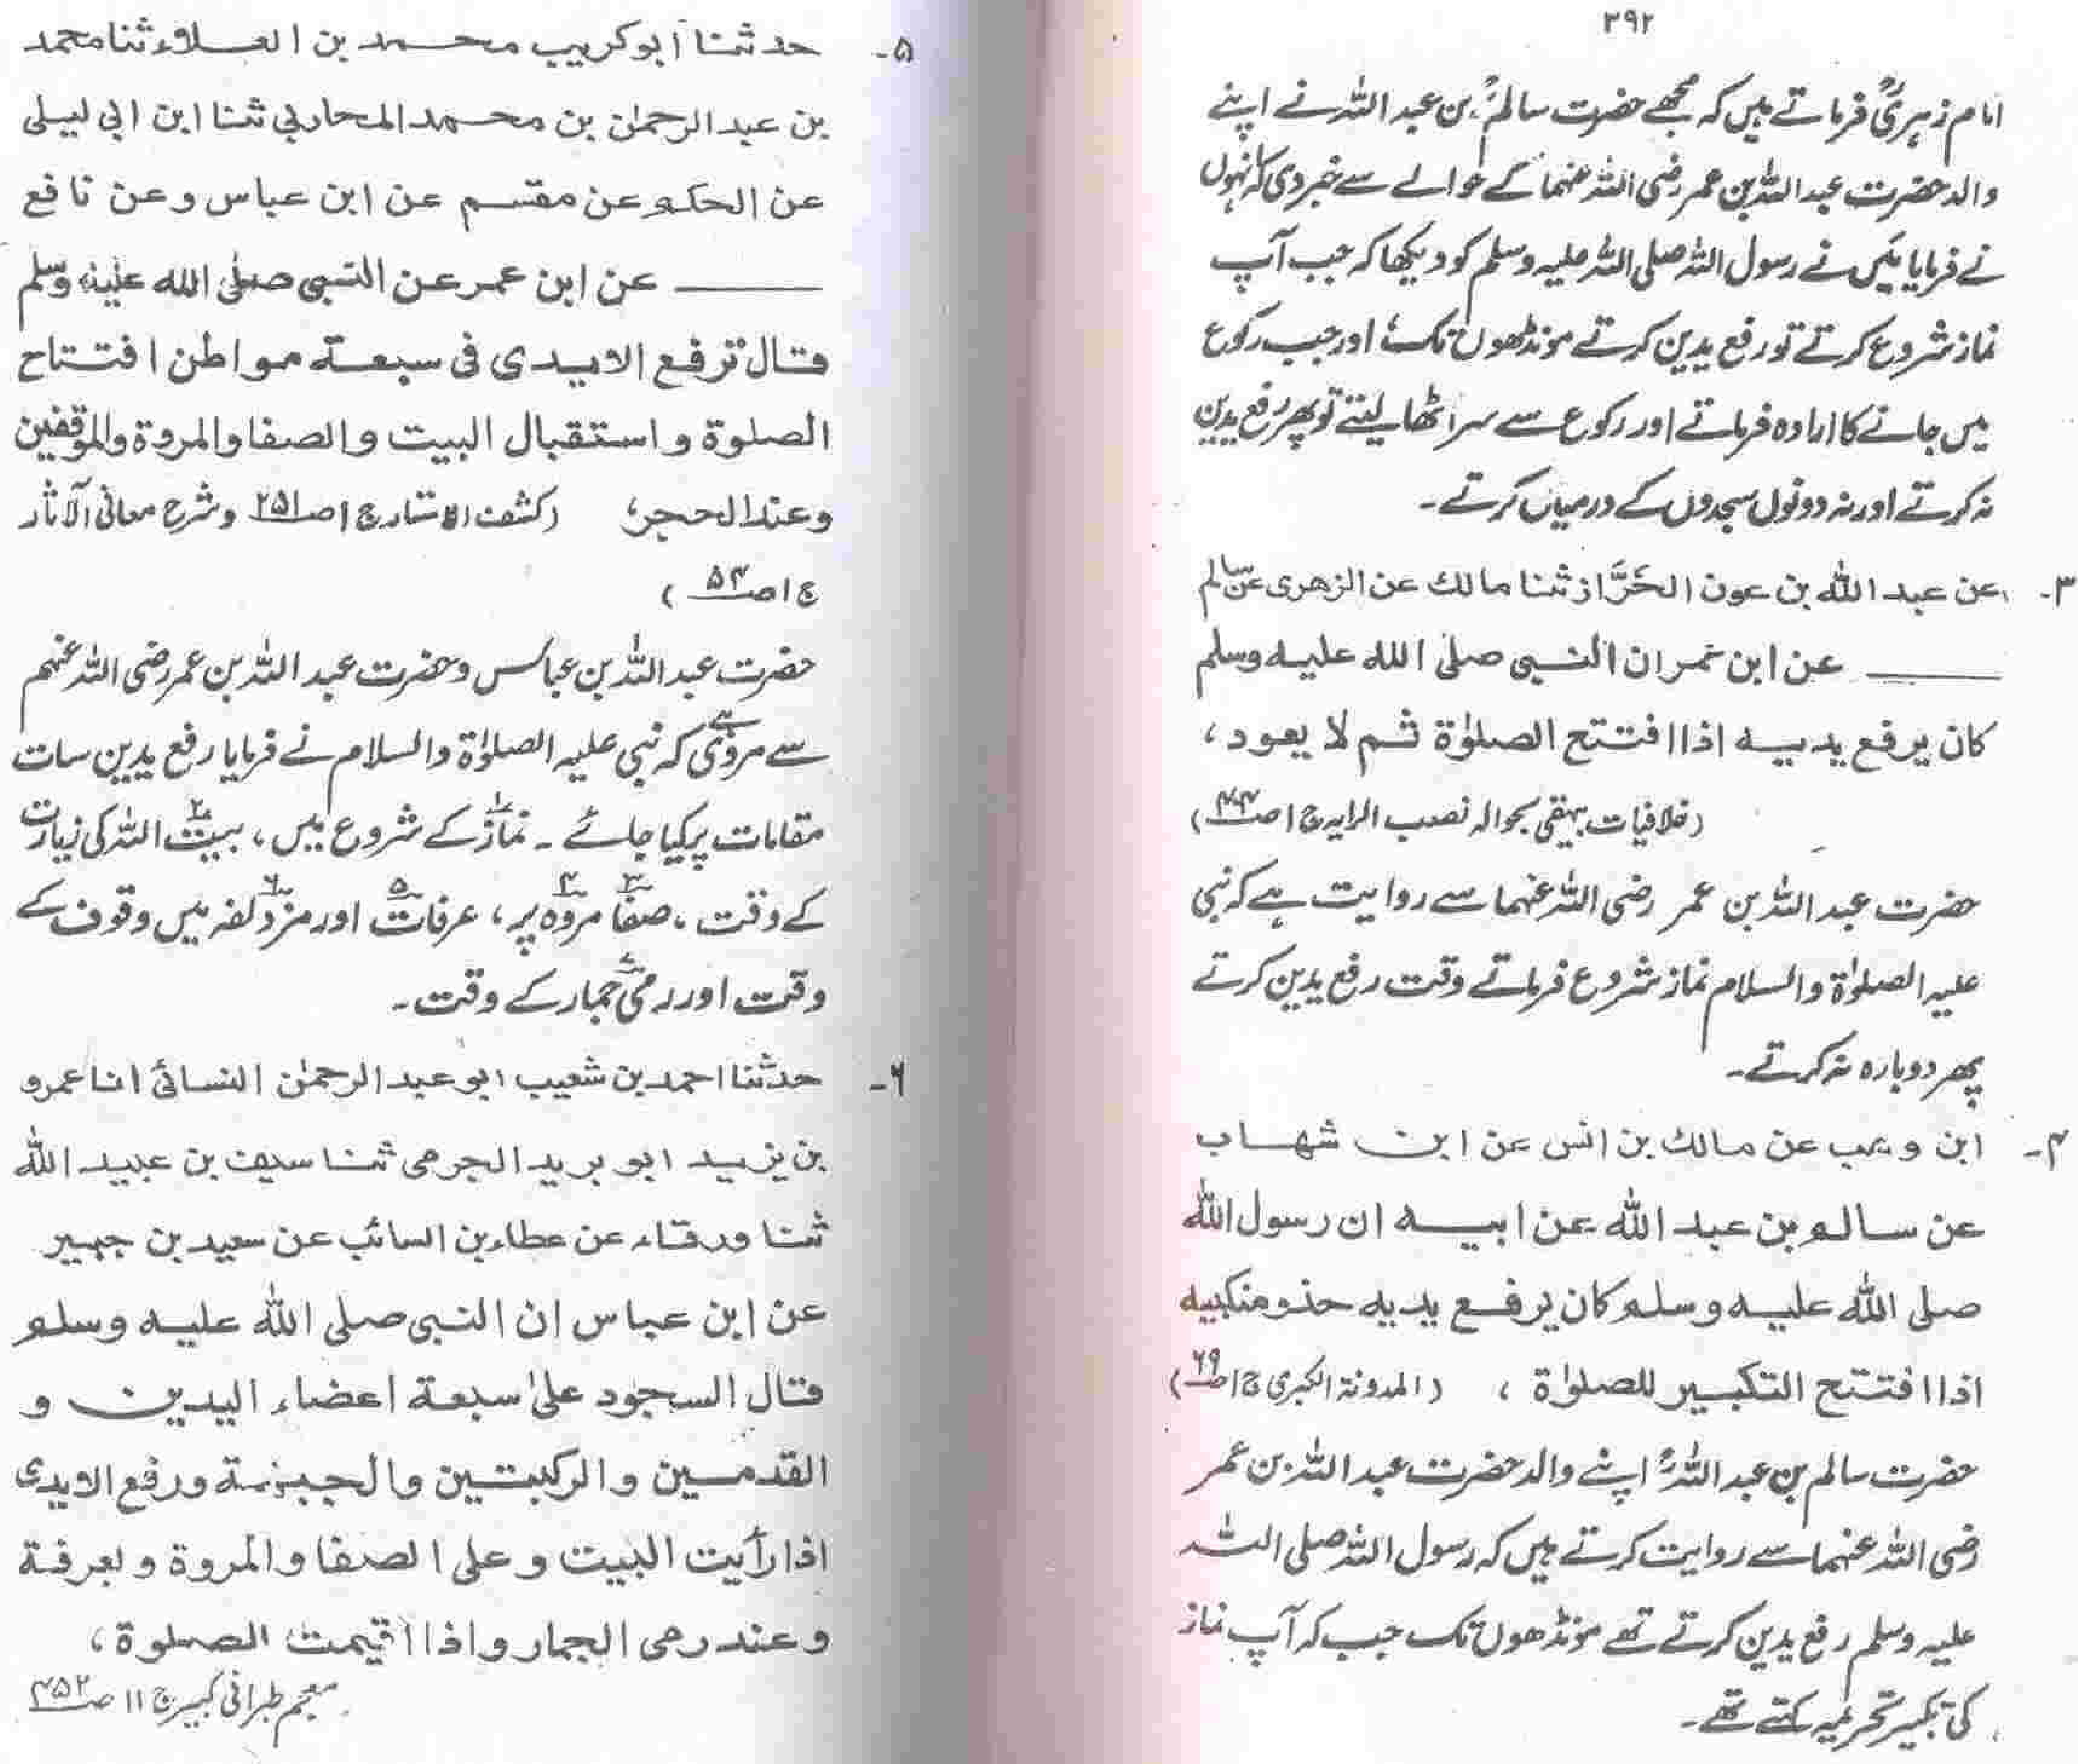 ۳۹۲
امام زہریؒ فرماتے ہیں کہ مجھے حضرت سالمؒ بن عبد اللہ نے اپنے
والد حضرت عبد اللہ بن عمر رضی اللہ عنہما کے حوالے سے خبر دی کہ انہوں
نے فرمایا میں نے رسول اللہ صلی اللہ علیہ وسلم کو دیکھا کہ جب آپ
نماز شروع کرتے تو رفع یدین کرتے مونڈھوں تک، اور جب رکوع
میں جانے کا ارادہ فرماتے اور رکوع سے سر اٹھا لیتے تو پھر رفع یدین
نہ کرتے اور نہ دونوں سجدوں کے درمیان کرتے۔
۳۔ عن عبد اللّٰه بن عون الخَرَّاز ثنا مالك عن الزهرى عن سالم
عن ابن عمر ان النبى صلى اللّٰه عليه وسلم
كان يرفع يديه اذا افتتح الصلوٰة ثم لا يعود،
(خلافیات بیہقی بحوالہ نصب الرایہ ج ۱ ص ۴۰۴)
حضرت عبد اللہ بن عمر رضی اللہ عنہما سے روایت ہے کہ نبی
علیہ الصلوٰۃ والسلام نماز شروع فرماتے وقت رفع یدین کرتے
پھر دوبارہ نہ کرتے۔
۴۔ ابن وهب عن مالك بن انس عن ابن شهاب
عن سالم بن عبد اللّٰه عن ابيه ان رسول اللّٰه
صلى اللّٰه عليه وسلم كان يرفع يديه حذو منكبيه
اذا افتتح التكبير للصلوٰة، (المدونۃ الکبری ج ۱ ص ۶۹)
حضرت سالم بن عبد اللہؒ اپنے والد حضرت عبد اللہ بن عمر
رضی اللہ عنہما سے روایت کرتے ہیں کہ رسول اللہ صلی اللہ
علیہ وسلم رفع یدین کرتے تھے مونڈھوں تک جب کہ آپ نماز
کی تکبیر تحریمہ کہتے تھے۔
۵۔ حدثنا ابوكريب محمد بن العلاء ثنا محمد
بن عبد الرحمٰن بن محمد المحاربي ثنا ابن ابي ليلى
عن الحكم عن مقسم عن ابن عباس وعن نافع
عن ابن عمر عن النبى صلى اللّٰه عليه وسلم
قال ترفع الايدى فى سبعة مواطن افتتاح
الصلوة واستقبال البيت والصفا والمروة والموقفين
وعند الحجر، (کشف الاستار ج ۱ ص ۲۵۱ وشرح معانی الآثار
ج ۱ ص ۵۴)
حضرت عبد اللہ بن عباس و حضرت عبد اللہ بن عمر رضی اللہ عنہم
سے مروی ہے کہ نبی علیہ الصلوٰۃ والسلام نے فرمایا رفع یدین سات
مقامات پر کیا جائے۔ نماز۱ کے شروع میں، بیت۲ اللہ کی زیارت
کے وقت، صفا۳ مروہ۴ پر، عرفات۵ اور مزدلفہ۶ میں وقوف کے
وقت اور رمی۷ جمار کے وقت۔
۶۔ حدثنا احمد بن شعيب ابو عبد الرحمٰن النسائى انا عمرو
بن يزيد ابو بريد الجرمى ثنا سيف بن عبيد اللّٰه
ثنا ورقاء عن عطاء بن السائب عن سعيد بن جبير
عن ابن عباس ان النبى صلى اللّٰه عليه وسلم
قال السجود علىٰ سبعة اعضاء اليدين و
القدمين والركبتين والجبهة ورفع الايدى
اذا رأيت البيت وعلى الصفا والمروة وبعرفة
وعند رمى الجمار واذا اقيمت الصلوة،
معجم طبرانی کبیر ج ۱۱ ص ۴۵۲